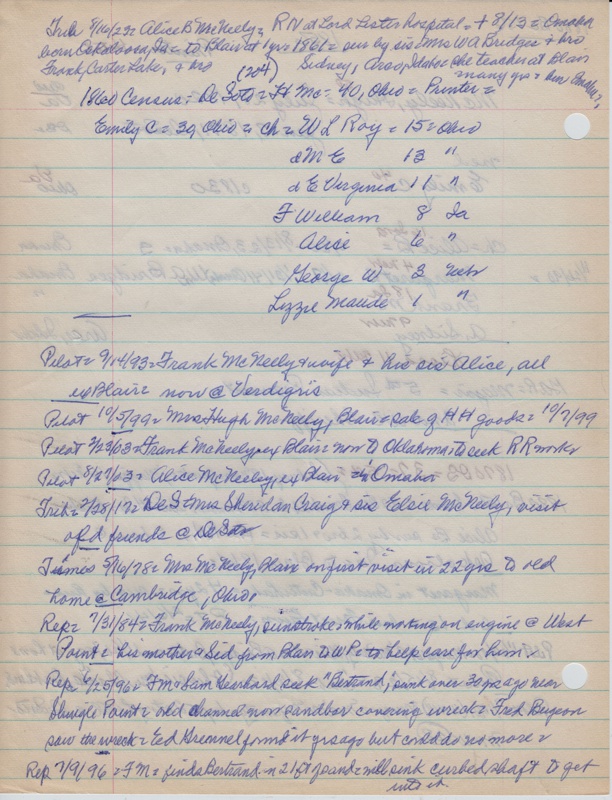 Trib 8/16/23 = Alice B McNeely = RN at Lord Lister hospital = + 8/13 = Omaha
born Oskaloosa, Ia = to Blair at 1 yr = 1861 = sur by sis = Mrs WA Bridges + bro
Frank, Carter Lake, + bro (204) Sidney, Arco, Idaho = she teacher at Blair
many yrs =
1860 Census; De Soto = H Mc = 40, Ohio = Printer =
Emily C = 39, Ohio = ch = W L Roy = 15 = Ohio
d M E 13 "
d E Virginia 11 "
F William 8 Ia
Alice 6 "
George W 3 Nebr
Lizzie Maude 1 "
Pilot = 9/14/93 = Frank McNeely + wife + his sis Alice, all
ex Blair = now @ Verdigris
Pilot 10/5/99 = Mrs Hugh McNeely, Blair = sale of HH goods = 10/7/99
Pilot 2/23/03 = Frank McNeely = ex Blair = now to Oklahoma to seek RR work
Pilot 8/27/03 = Alice McNeeley, ex Blair = Omaha
Trib = 2/28/17 = De S = Mrs Sheridan Craig + sis Elsie McNeely, visit
old friends @ De Soto
Times 5/16/78 = Mrs McNeely, Blair on first visit in 22 yrs to old
home @ Cambridge, Ohio
Rep = 7/31/84 = Frank McNeely, sunstroke = while working on engine @ West
Point = his mother + Sid from Blair to W Pt to help care for him =
Rep = 6/25/96 = F M + Sam seek "Bertrand," sunk over 30 yrs ago near
Shingle Point = old channel now sandbar covering wreck = Fred
saw the wreck = Ed found it yrs ago but could do no more =
Rep 7/9/96 = F M = finds Bertrand in 21 ft sand = will sink curbed shaft to get
into it